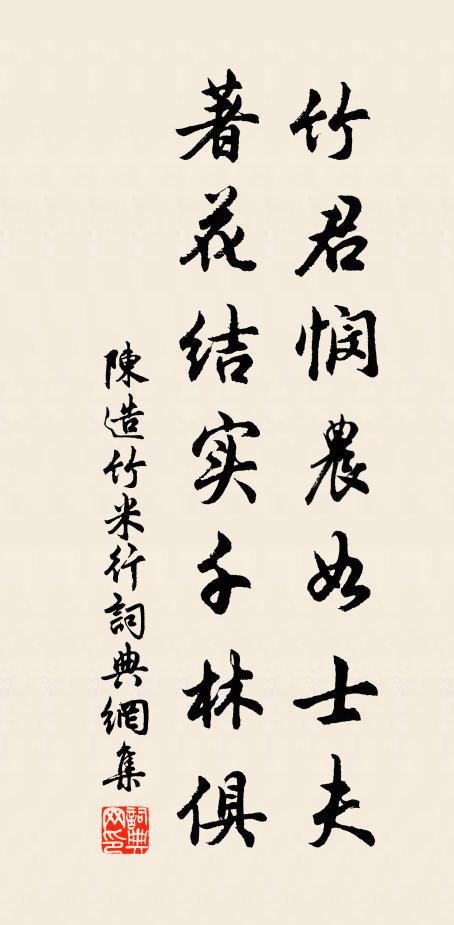 竹君悯農如士夫
著花结实千林俱
陳造竹米行詞典網集
詞典网印